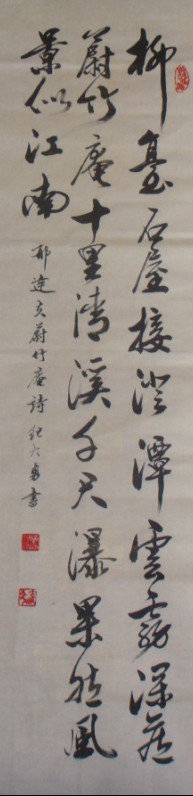 柳台石屋接澄潭雲霧深藏
蔚竹庵十里清溪千尺瀑果然風
景似江南
郁達夫蔚竹庵詩 紀六勇書